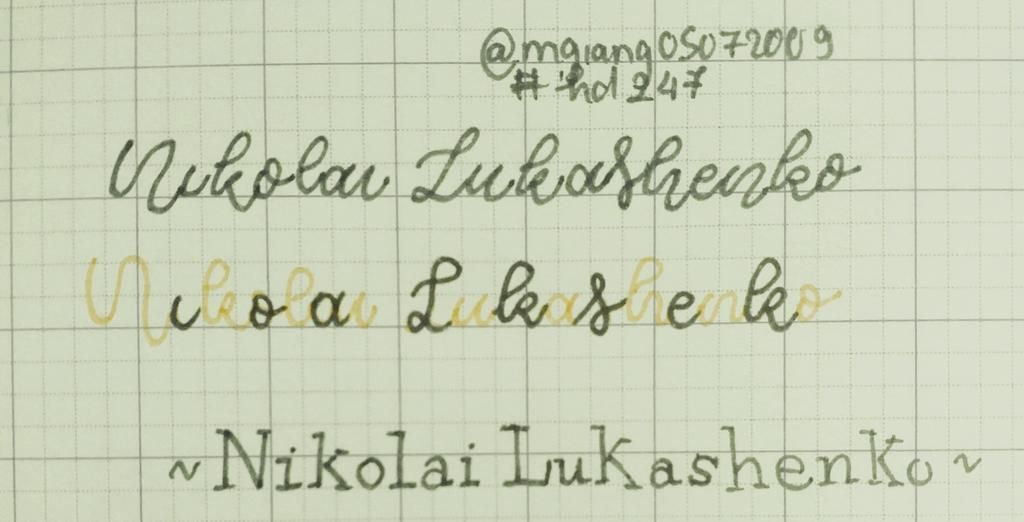 @mgiang05072009
#hd247
Nikolai Lukashenko
Nikolai Lukashenko
~Nikolai LuKashenKo~